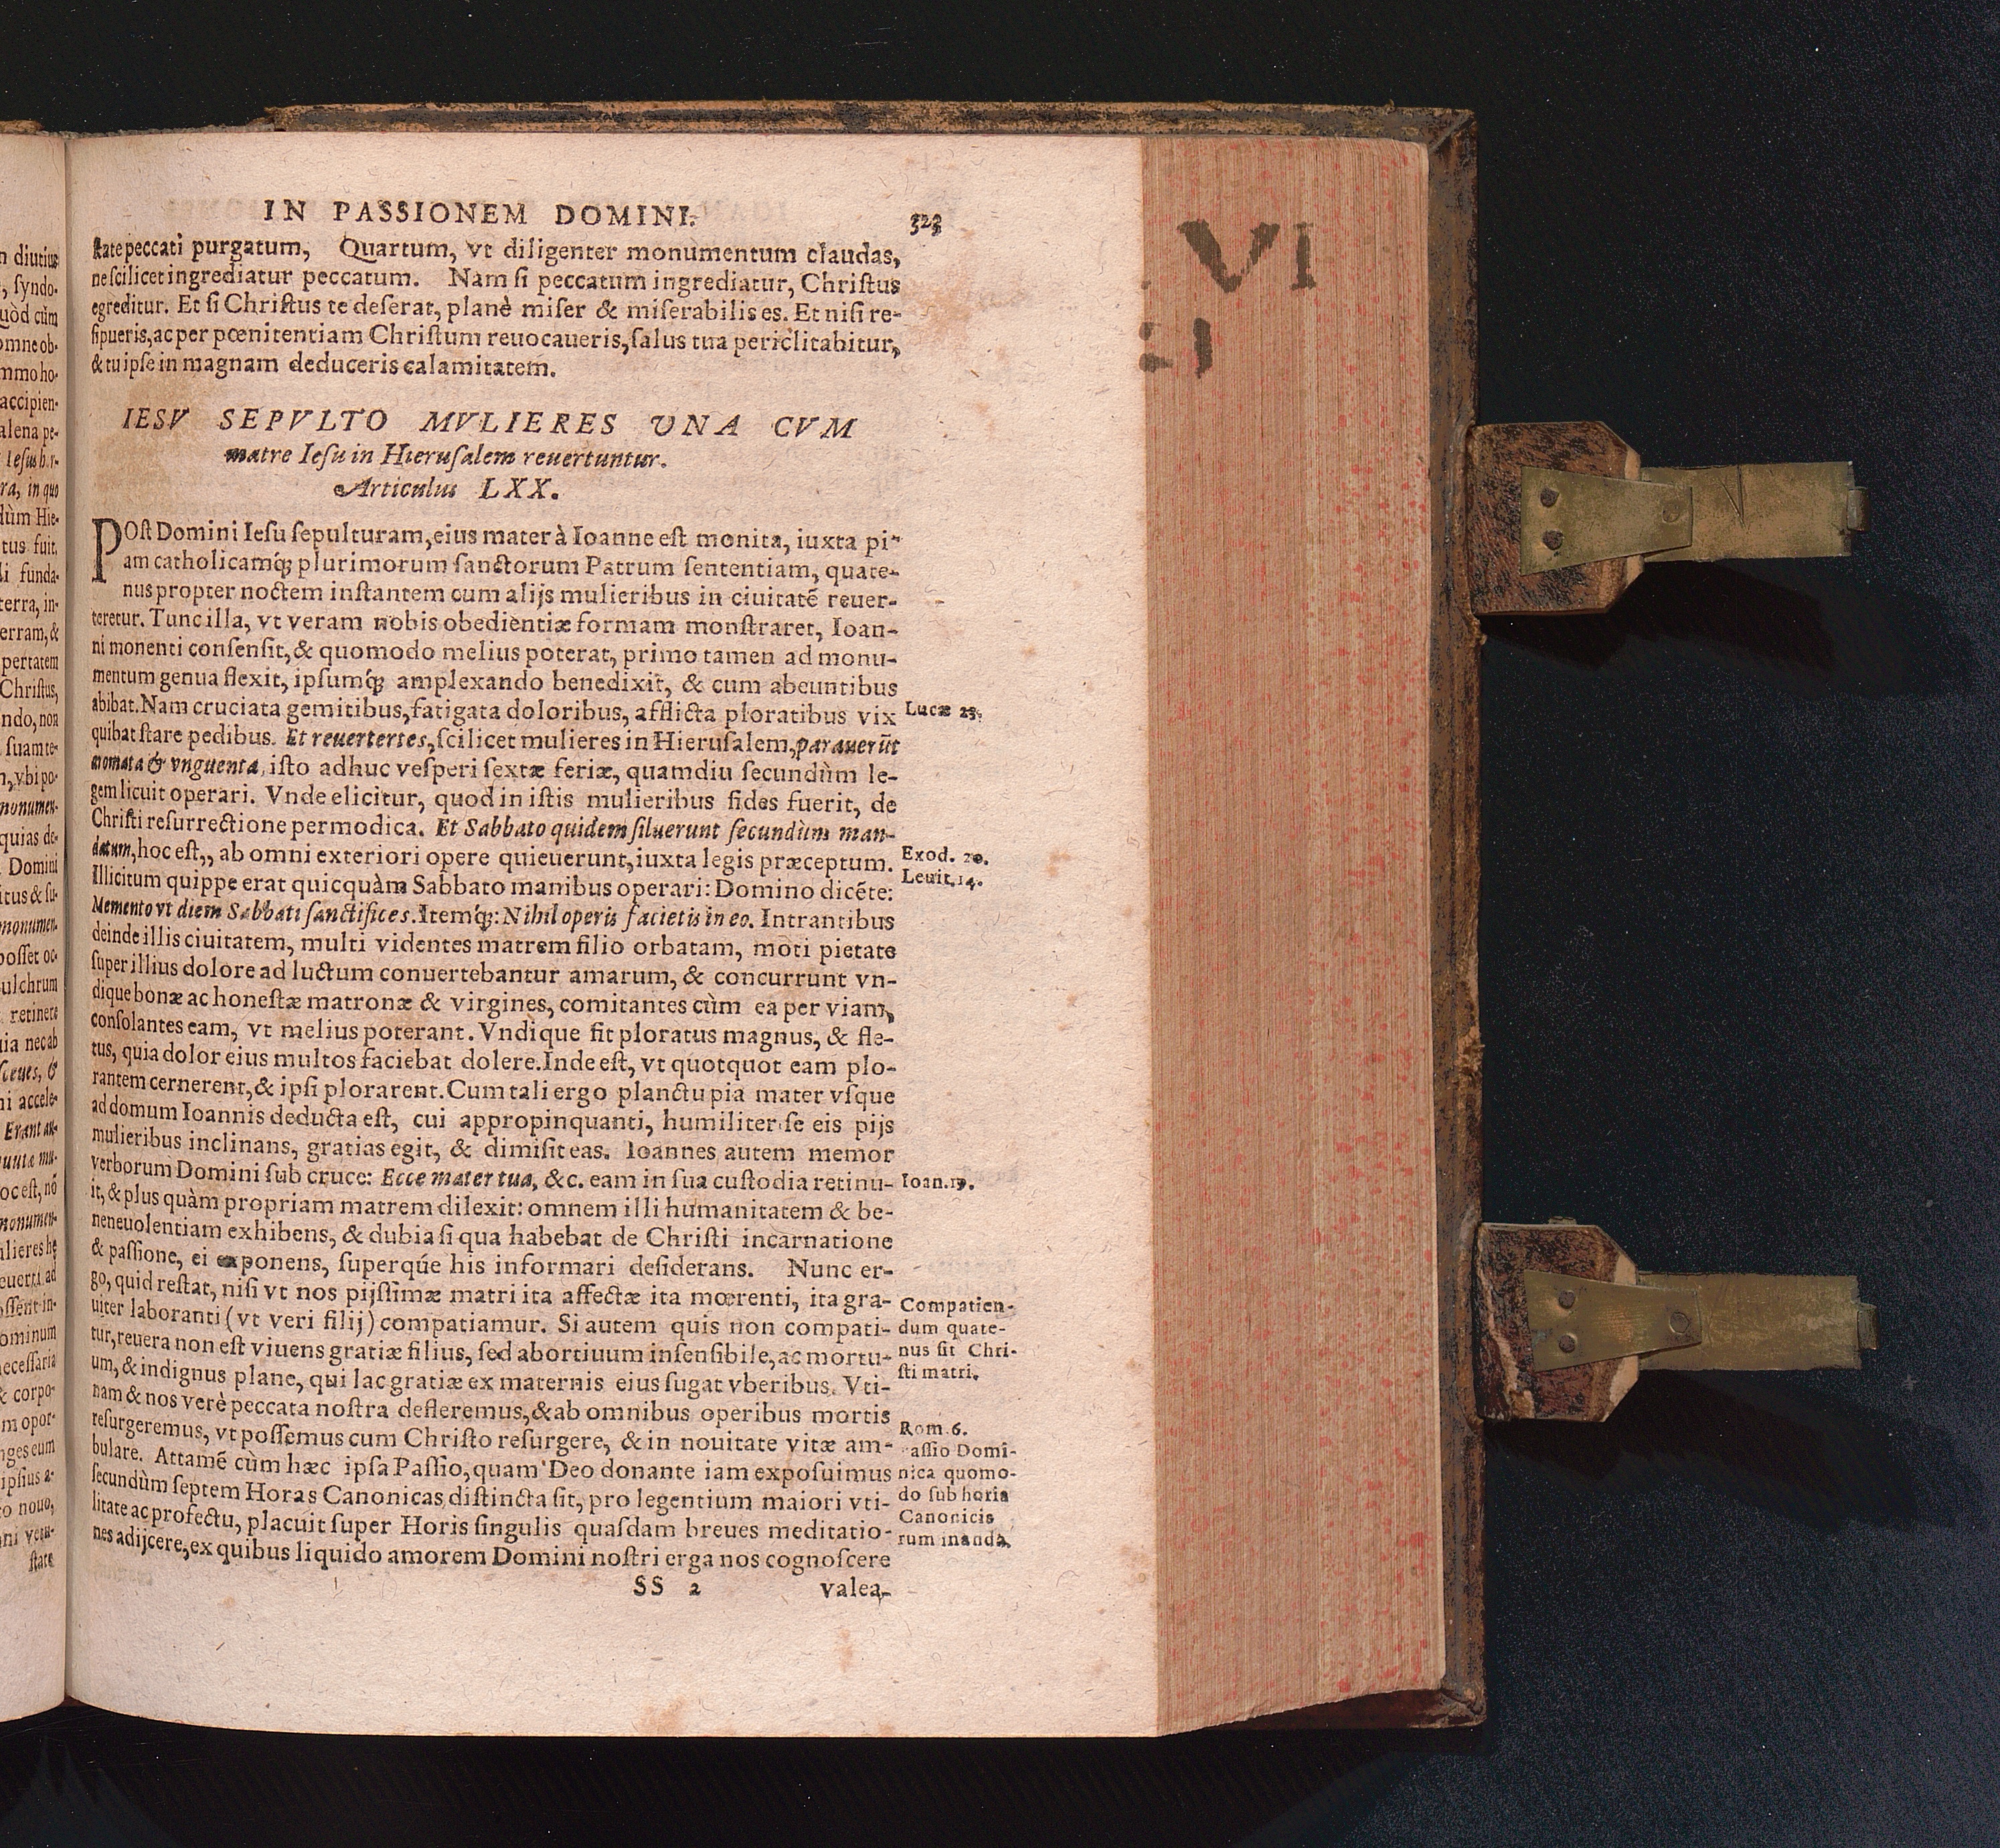 n diutius
, syndo-
uòd cùm
omne ob-
mmo ho-
accipien-
alena pe-
Iesus
ra, in quo
dùm Hie-
tus fuit,
li funda-
terra, in-
erram, &
pertatem
Christus,
ndo, non
suam te-
n, vbi po-
monumen-
quias de-
Domini
itus & su-
monumen-
posset oc-
ulchrum
retinere
uia necab
sceues, &
ni accele-
Erant au-
mu-
oc est, nō
monumen-
ulieres
ad
ossent in-
ominum
ecessaria
& corpo-
m opor-
nges eum
ipsius a-
o nouo,
ni vetu-
state
IN PASSIONEM DOMINI. 323
state peccati purgatum, Quartum, vt diligenter monumentum claudas,
ne scilicet ingrediatur peccatum. Nam si peccatum ingrediatur, Christus
egreditur. Et si Christus te deserat, planè miser & miserabilis es. Et nisi re-
sipueris, ac per pœnitentiam Christum reuocaueris, salus tua periclitabitur,
& tu ipse in magnam deduceris calamitatem.
IESV SEPVLTO MVLIERES VNA CVM
matre Iesu in Hierusalem reuertuntur.
Articulus LXX.
POst Domini Iesu sepulturam, eius mater à Ioanne est monita, iuxta pi-
am catholicamq́; plurimorum sanctorum Patrum sententiam, quate-
nus propter noctem instantem cum alijs mulieribus in ciuitatē reuer-
teretur. Tunc illa, vt veram nobis obedientiæ formam monstraret, Ioan-
ni monenti consensit, & quomodo melius poterat, primo tamen ad monu-
mentum genua flexit, ipsumq́; amplexando benedixit, & cum abeuntibus
abibat. Nam cruciata gemitibus, fatigata doloribus, afflicta ploratibus vix
Lucæ 23.
quibat stare pedibus. Et reuertertes, scilicet mulieres in Hierusalem, parauerūt
aromata & vnguenta, isto adhuc vesperi sextæ feriæ, quamdiu secundùm le-
gem licuit operari. Vnde elicitur, quod in istis mulieribus fides fuerit, de
Christi resurrectione permodica. Et Sabbato quidem siluerunt secundùm man-
datum, hoc est,, ab omni exteriori opere quieuerunt, iuxta legis præceptum.
Exod. 20.
Illicitum quippe erat quicquàm Sabbato manibus operari: Domino dicēte:
Leuit. 14.
Memento vt diem Sabbati sanctifices. Itemq́;: Nihil operis facietis in eo. Intrantibus
deinde illis ciuitatem, multi videntes matrem filio orbatam, moti pietate
super illius dolore ad luctum conuertebantur amarum, & concurrunt vn-
dique bonæ ac honestæ matronæ & virgines, comitantes cùm ea per viam,
consolantes eam, vt melius poterant. Vndique fit ploratus magnus, & fle-
tus, quia dolor eius multos faciebat dolere. Inde est, vt quotquot eam plo-
rantem cernerent, & ipsi plorarent. Cum tali ergo planctu pia mater vsque
ad domum Ioannis deducta est, cui appropinquanti, humiliter se eis pijs
mulieribus inclinans, gratias egit, & dimisit eas. Ioannes autem memor
verborum Domini sub cruce: Ecce mater tua, &c. eam in sua custodia retinu-
Ioan. 19.
it, & plus quàm propriam matrem dilexit: omnem illi humanitatem & be-
neneuolentiam exhibens, & dubia si qua habebat de Christi incarnatione
& passione, ei exponens, superqúe his informari desiderans. Nunc er-
go, quid restat, nisi vt nos pijssimæ matri ita affectæ ita mœrenti, ita gra-
uiter laboranti (vt veri filij) compatiamur. Si autem quis non compati-
tur, reuera non est viuens gratiæ filius, sed abortiuum insensibile, ac mortu-
um, & indignus plane, qui lac gratiæ ex maternis eius sugat vberibus. Vti-
Compatien-
dum quate-
nus sit Chri-
sti matri.
nam & nos verè peccata nostra defleremus, & ab omnibus operibus mortis
resurgeremus, vt possemus cum Christo resurgere, & in nouitate vitæ am-
bulare. Attamē cùm hæc ipsa Passio, quam Deo donante iam exposuimus
secundùm septem Horas Canonicas distincta sit, pro legentium maiori vti-
litate ac profectu, placuit super Horis singulis quasdam breues meditatio-
nes adijcere, ex quibus liquido amorem Domini nostri erga nos cognoscere
Rom. 6.
assio Domi-
nica quomo-
do sub horis
Canonicis
rum inanda.
SS 2 valea-
VI